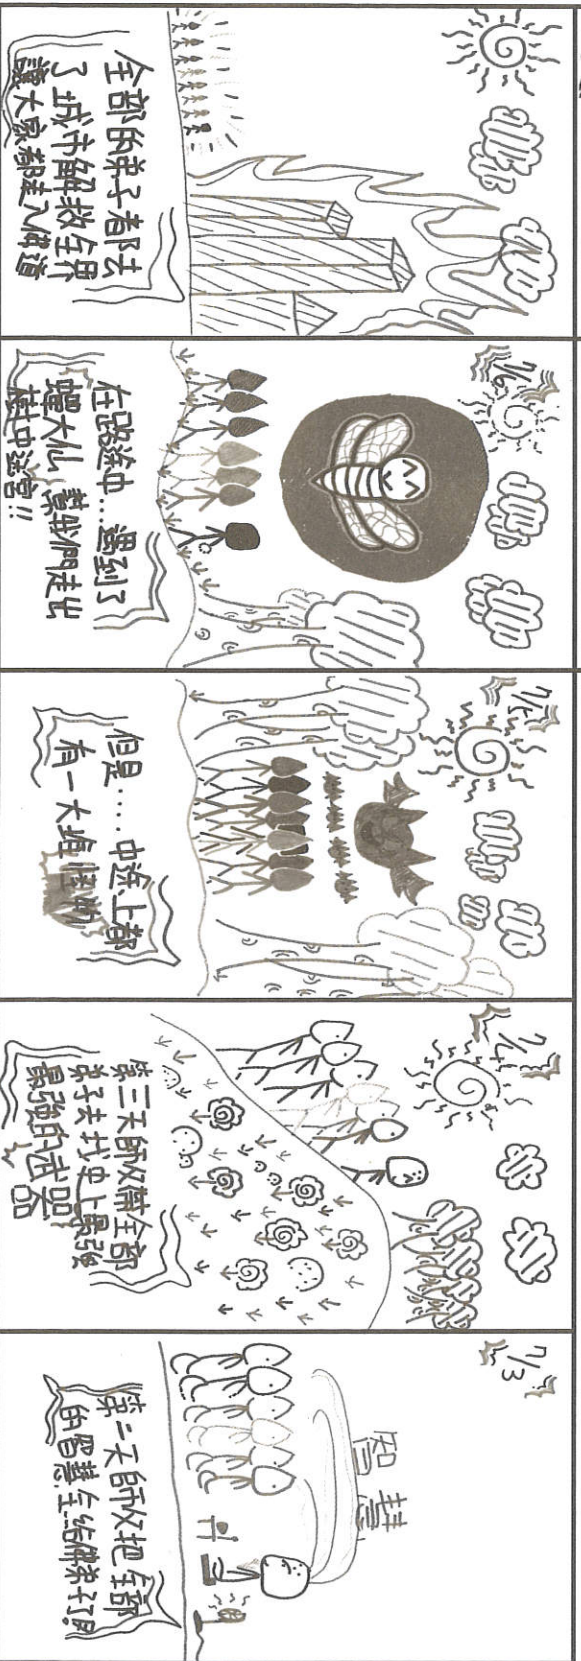 7/3
智慧
第二天師父把全部
的智慧全給佛弟子了!
7/4
第三天師父帶全部
弟子去找史上最強
最強的武器
7/5
但是....中途上都
有一大堆怪物
7/6
在路途中...遇到了
蟬大仙 幫我們走出
樹中迷宮!!
全部的弟子都去
了城市解救全界
讓大家都走入佛道